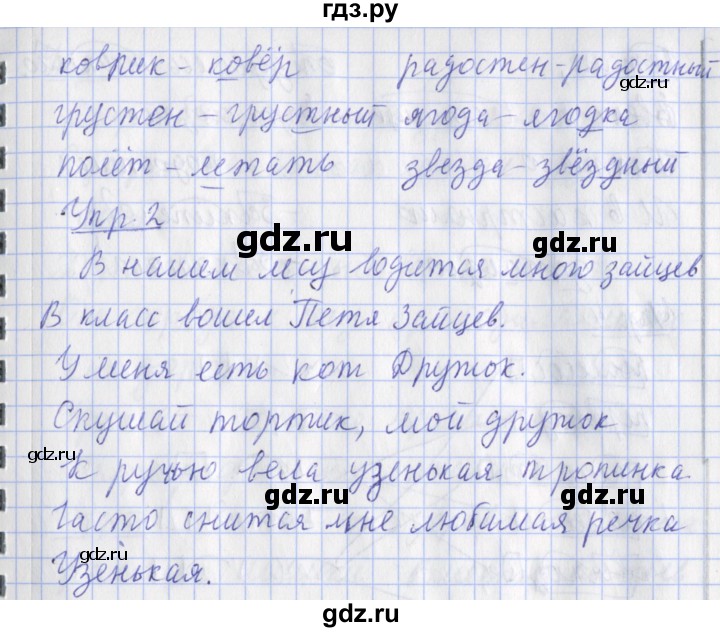 гдз.ру
коврик - ковёр радостен - радостный
грустен - грустный ягода - ягодка
полёт - летать звезда - звёздный
Упр. 2
gdz.ru gdz.ru
В нашем лесу водится много зайцев
В класс вошел Петя Зайцев.
У меня есть кот Дружок.
Скушай тортик, мой дружок
gdz.ru
К ручью вела узенькая тропинка
gdz.ru gdz.ru
Часто снится мне любимая речка
Узенькая.
gdz.ru gdz.ru
gdz.ru